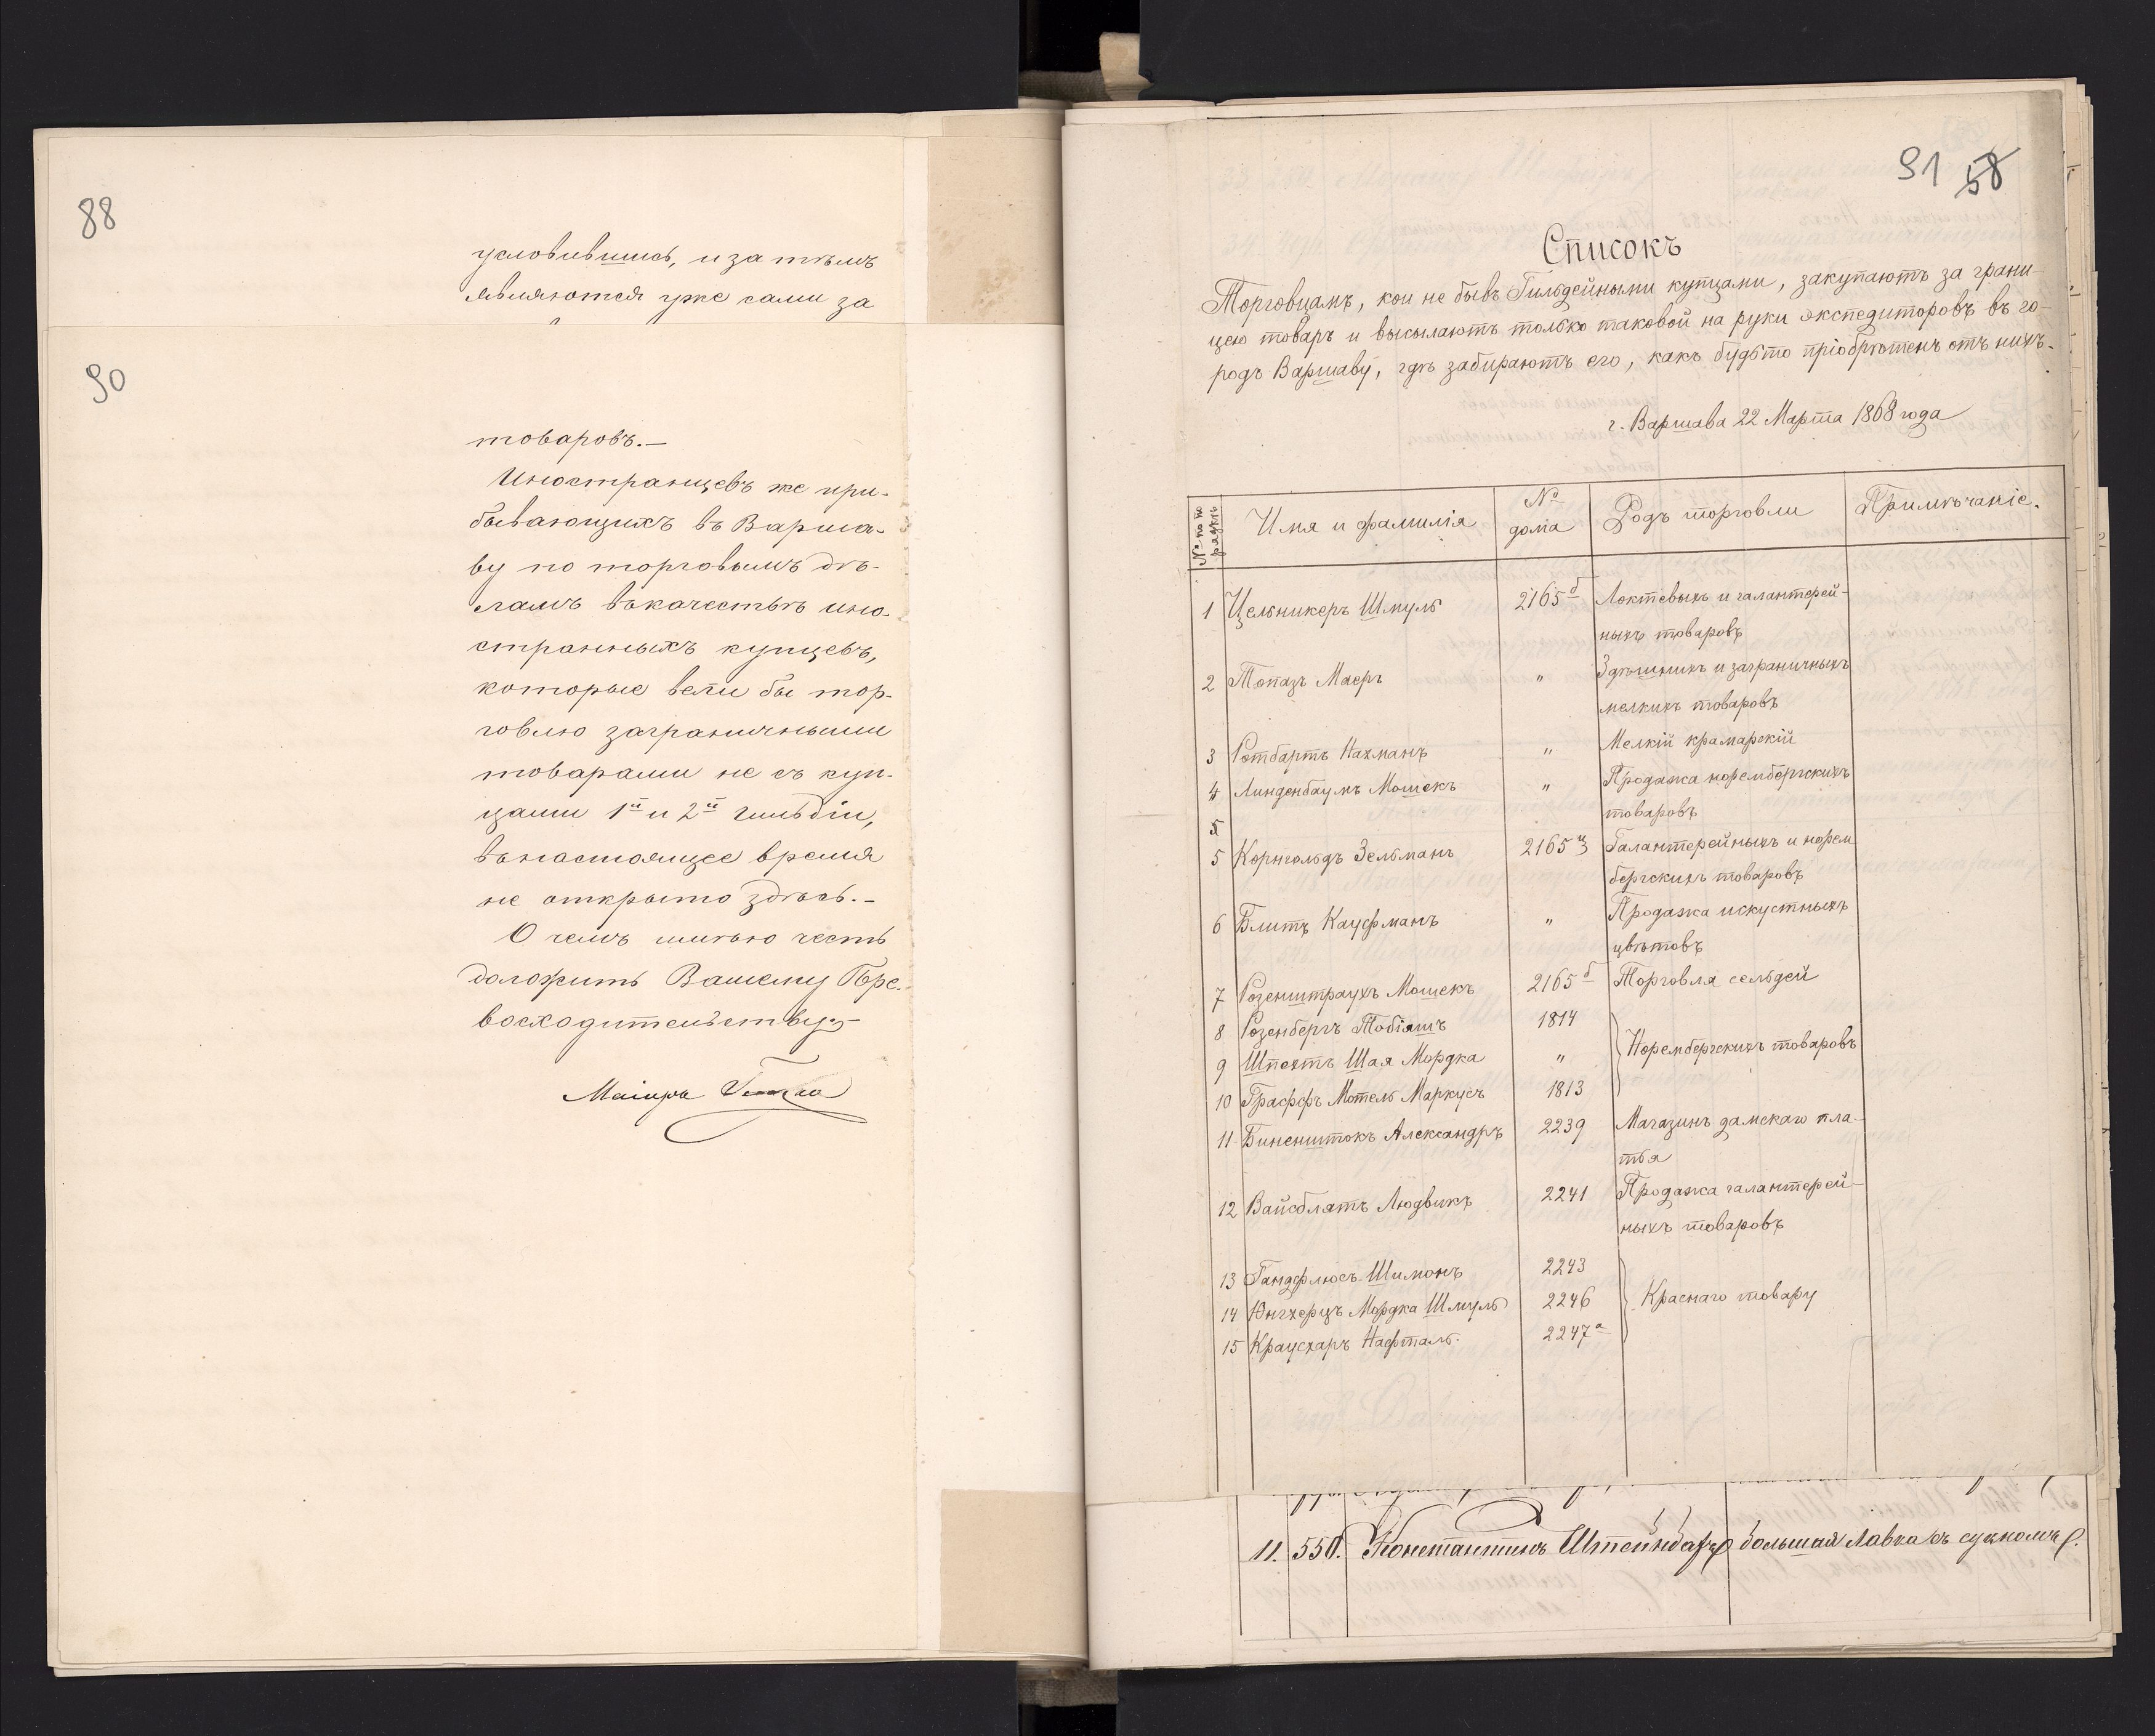 88
условившись, и за тѣмъ
являются уже сами за
90
товаровъ.—
Иностранцевъ же при-
бывающихъ въ Варша-
ву по торговымъ дѣ-
ламъ въ качествѣ ино-
странныхъ купцевъ,
которые вели бы тор-
говлю заграничными
товарами не съ куп-
цами 1й и 2й гильдіи,
въ настоящее время
не открыто здѣсь.—
О чемъ имѣю честь
доложить Вашему Пре-
восходительству
Маіоръ
91 58
Списокъ
Торговцамъ, кои не бывъ Гильдейными купцами, закупаютъ за грани-
цею товаръ и высылаютъ только таковой на руки экспедиторовъ въ го-
родъ Варшаву, гдѣ забираютъ его, какъ будьто пріобрѣтенъ отъ нихъ.
г. Варшава 22 Марта 1868 года
№ по по рядкѣ Имя и фамилія № дома Родъ торговли Примѣчаніе.
1 Цельникеръ Шмуль 2165б Локтевыхъ и галантерей-
ныхъ товаровъ
2 Топазъ Маеръ " Здѣшнихъ и заграничныхъ
мелкихъ товаровъ
3 Ротбартъ Нахманъ " Мелкій крамарскій
4 Линденбаумъ Мошекъ " Продажа норембергскихъ
5 товаровъ
5 Корнгольдъ Зельманъ 2165 Галантерейныхъ и норем
бергскихъ товаровъ
6 Блитъ Кауфманъ " Продажа искустныхъ
цвѣтовъ
7 Розенштраухъ Мошекъ 2165б Торговля сельдей
8 Розенбергъ Тобіяшъ 1814
9 Шпектъ Шая Мордка " Норембергскихъ товаровъ
10 Графъ Мотель Маркусъ 1813
11 Биненштокъ Александръ 2239 Магазинъ дамскаго пла-
тья
12 Вайсблатъ Людвикъ 2241 Продажа галантерей-
ныхъ товаровъ
13 Гандфлюсъ Шимонъ 2243
14 Юнгхерцъ Мордка Шмуль 2246 Краснаго товару
15 Краусхаръ Нафталь. 2247а
11. 550. Константинъ Штейнбахъ большая лавка съ сукномъ.